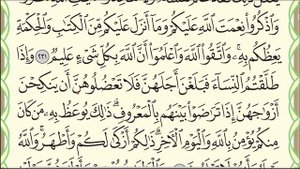 وَٱذۡكُرُواْ نِعۡمَتَ ٱللَّهِ عَلَيۡكُمۡ وَمَآ أَنزَلَ عَلَيۡكُم مِّنَ ٱلۡكِتَٰبِ وَٱلۡحِكۡمَةِ
يَعِظُكُم بِهِۦۚ وَٱتَّقُواْ ٱللَّهَ وَٱعۡلَمُوٓاْ أَنَّ ٱللَّهَ بِكُلِّ شَيۡءٍ عَلِيمٞ ٢٣١ وَإِذَا
طَلَّقۡتُمُ ٱلنِّسَآءَ فَبَلَغۡنَ أَجَلَهُنَّ فَلَا تَعۡضُلُوهُنَّ أَن يَنكِحۡنَ
أَزۡوَٰجَهُنَّ إِذَا تَرَٰضَوۡاْ بَيۡنَهُم بِٱلۡمَعۡرُوفِۗ ذَٰلِكَ يُوعَظُ بِهِۦ مَن كَانَ
مِنكُمۡ يُؤۡمِنُ بِٱللَّهِ وَٱلۡيَوۡمِ ٱلۡأٓخِرِۗ ذَٰلِكُمۡ أَزۡكَىٰ لَكُمۡ وَأَطۡهَرُۚ وَٱللَّهُ